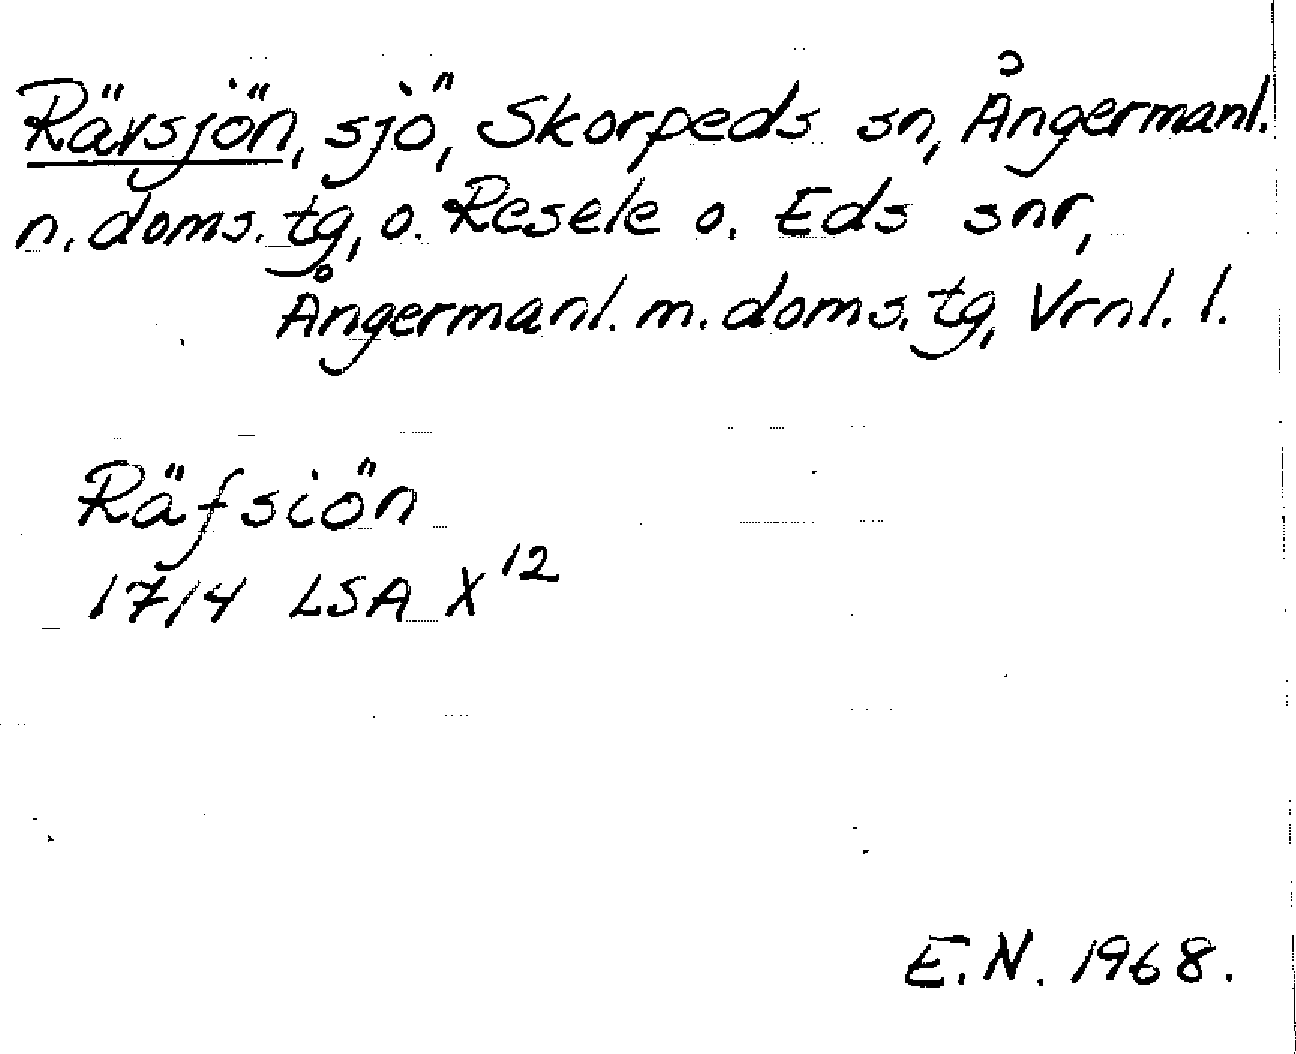 Rävsjön, sjö, Skorpeds sn, Ångermanl.
n. doms. tg, o. Resele o. Eds snr,
Ångermanl. m. doms. tg, Vrnl. l.
Räfsiön
1714 LSA X 12
E.N. 1968.